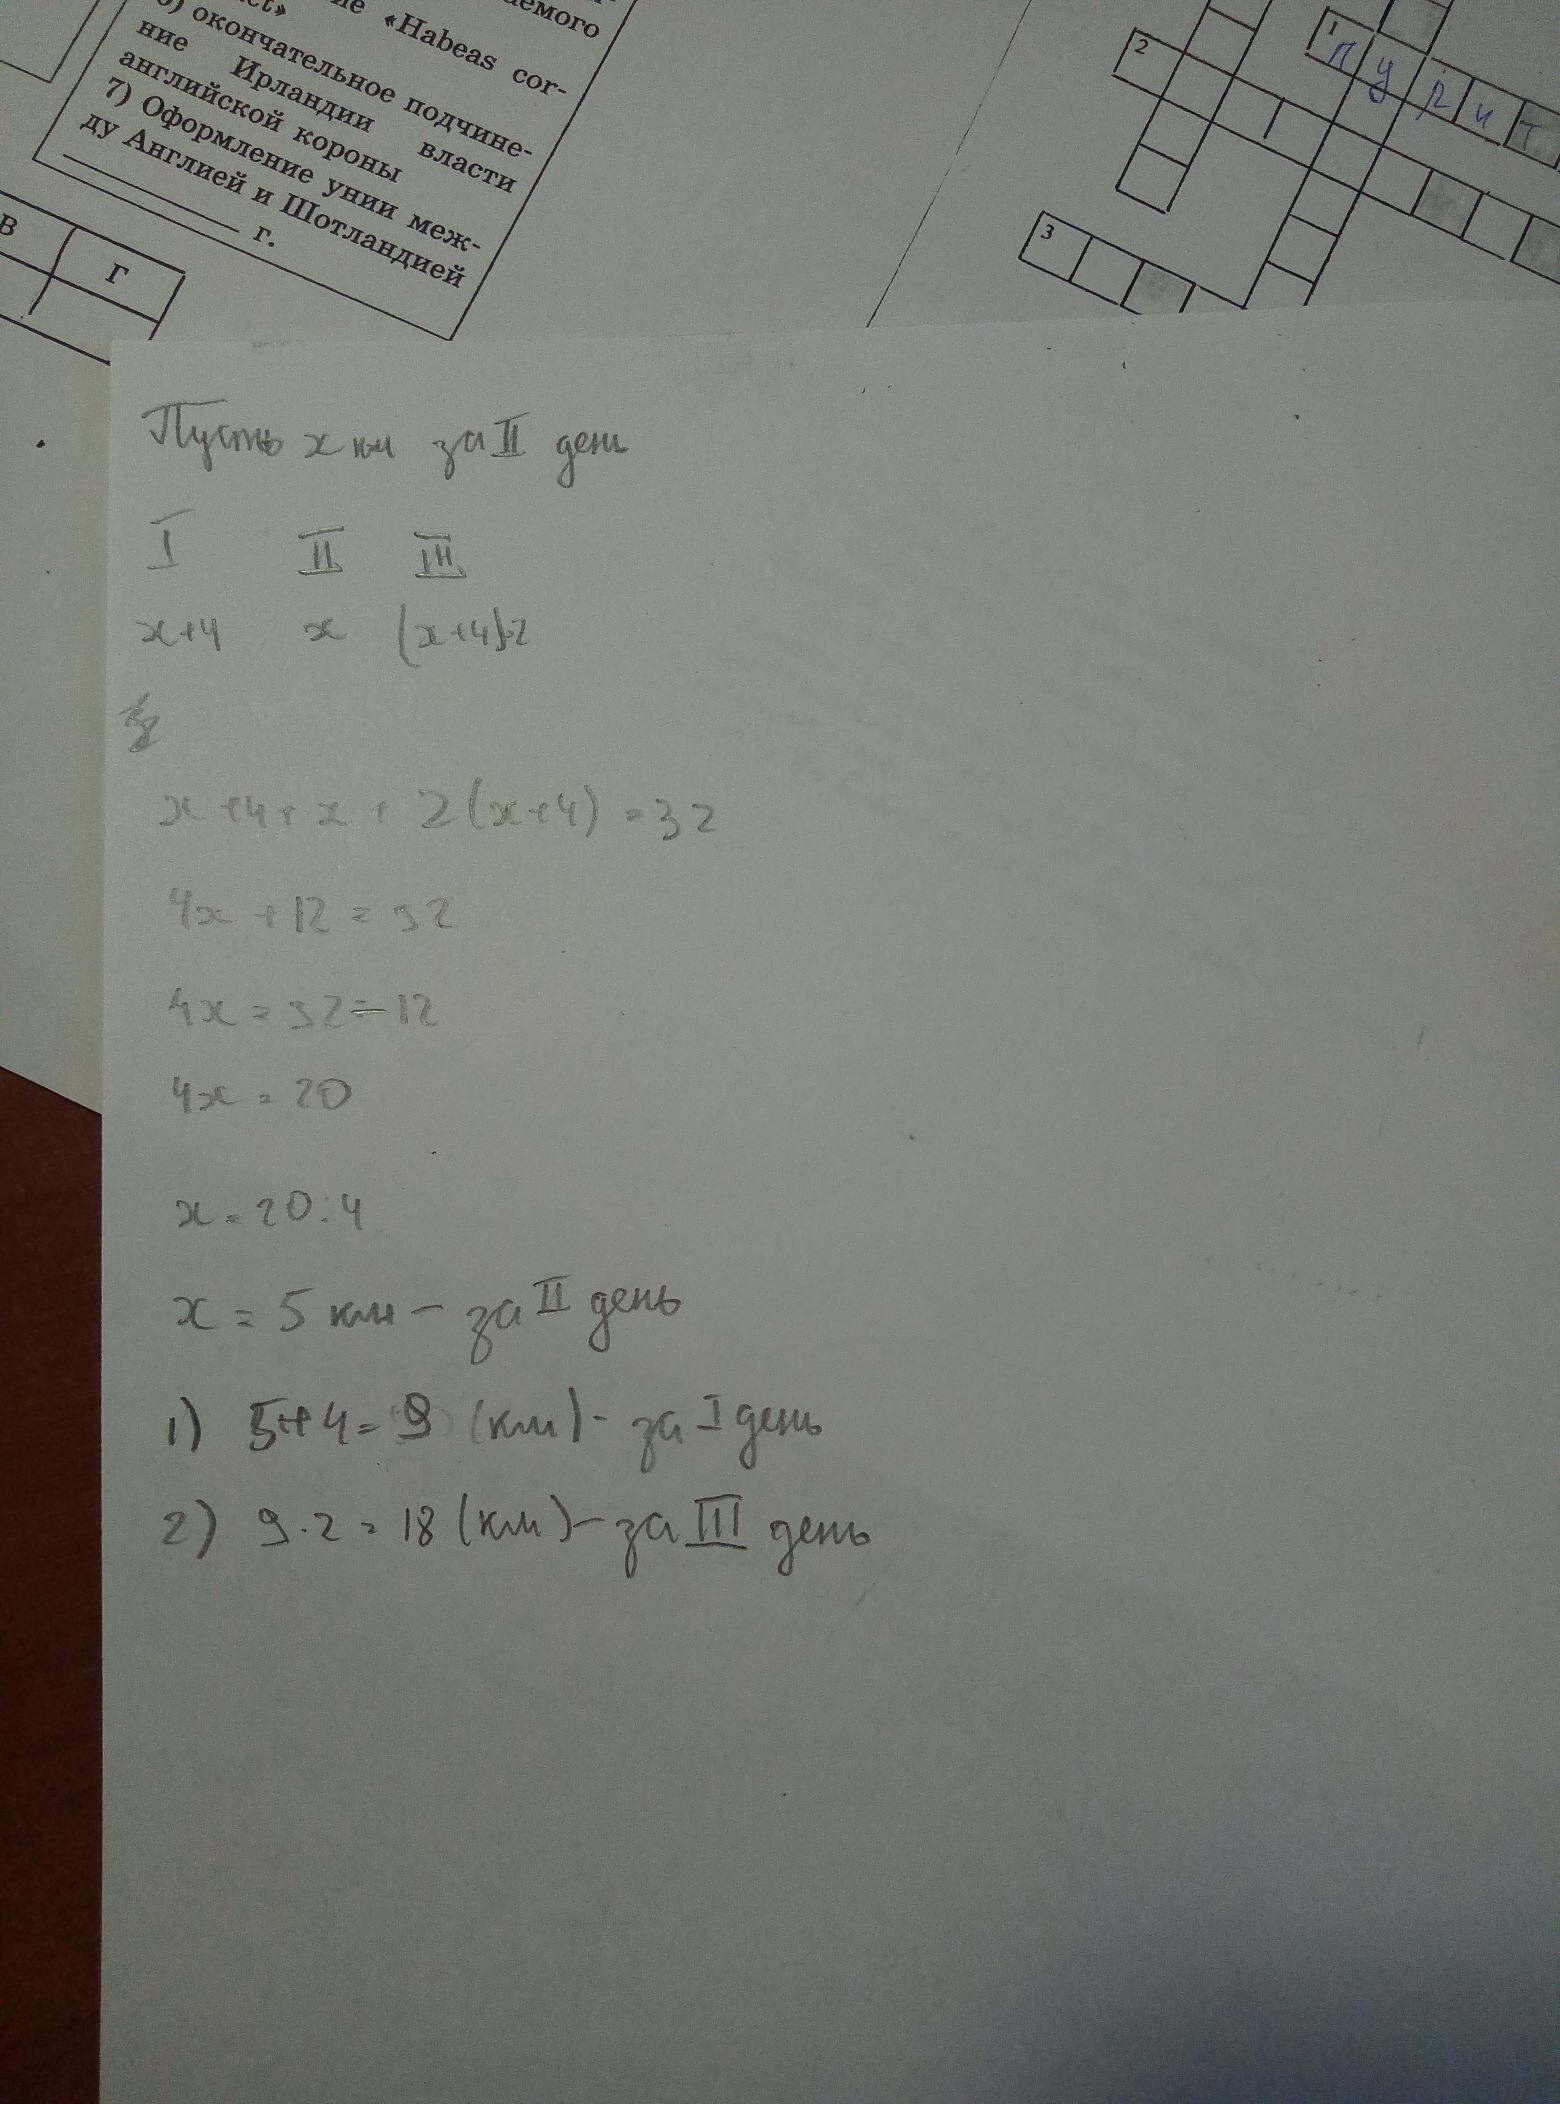 аемого
ие «Habeas cor-
ct»
6) окончательное подчине-
ние Ирландии власти
английской короны
7) Оформление унии меж-
ду Англией и Шотландией
г.
В Г
1 п у р и т
2
3
Пусть x км за II день
I II III
x+4 x (x+4)·2
x+4+x+2(x+4)=32
4x+12=32
4x=32-12
4x=20
x=20:4
x=5 км - за II день
1) 5+4=9 (км) - за I день
2) 9·2=18 (км) - за III день